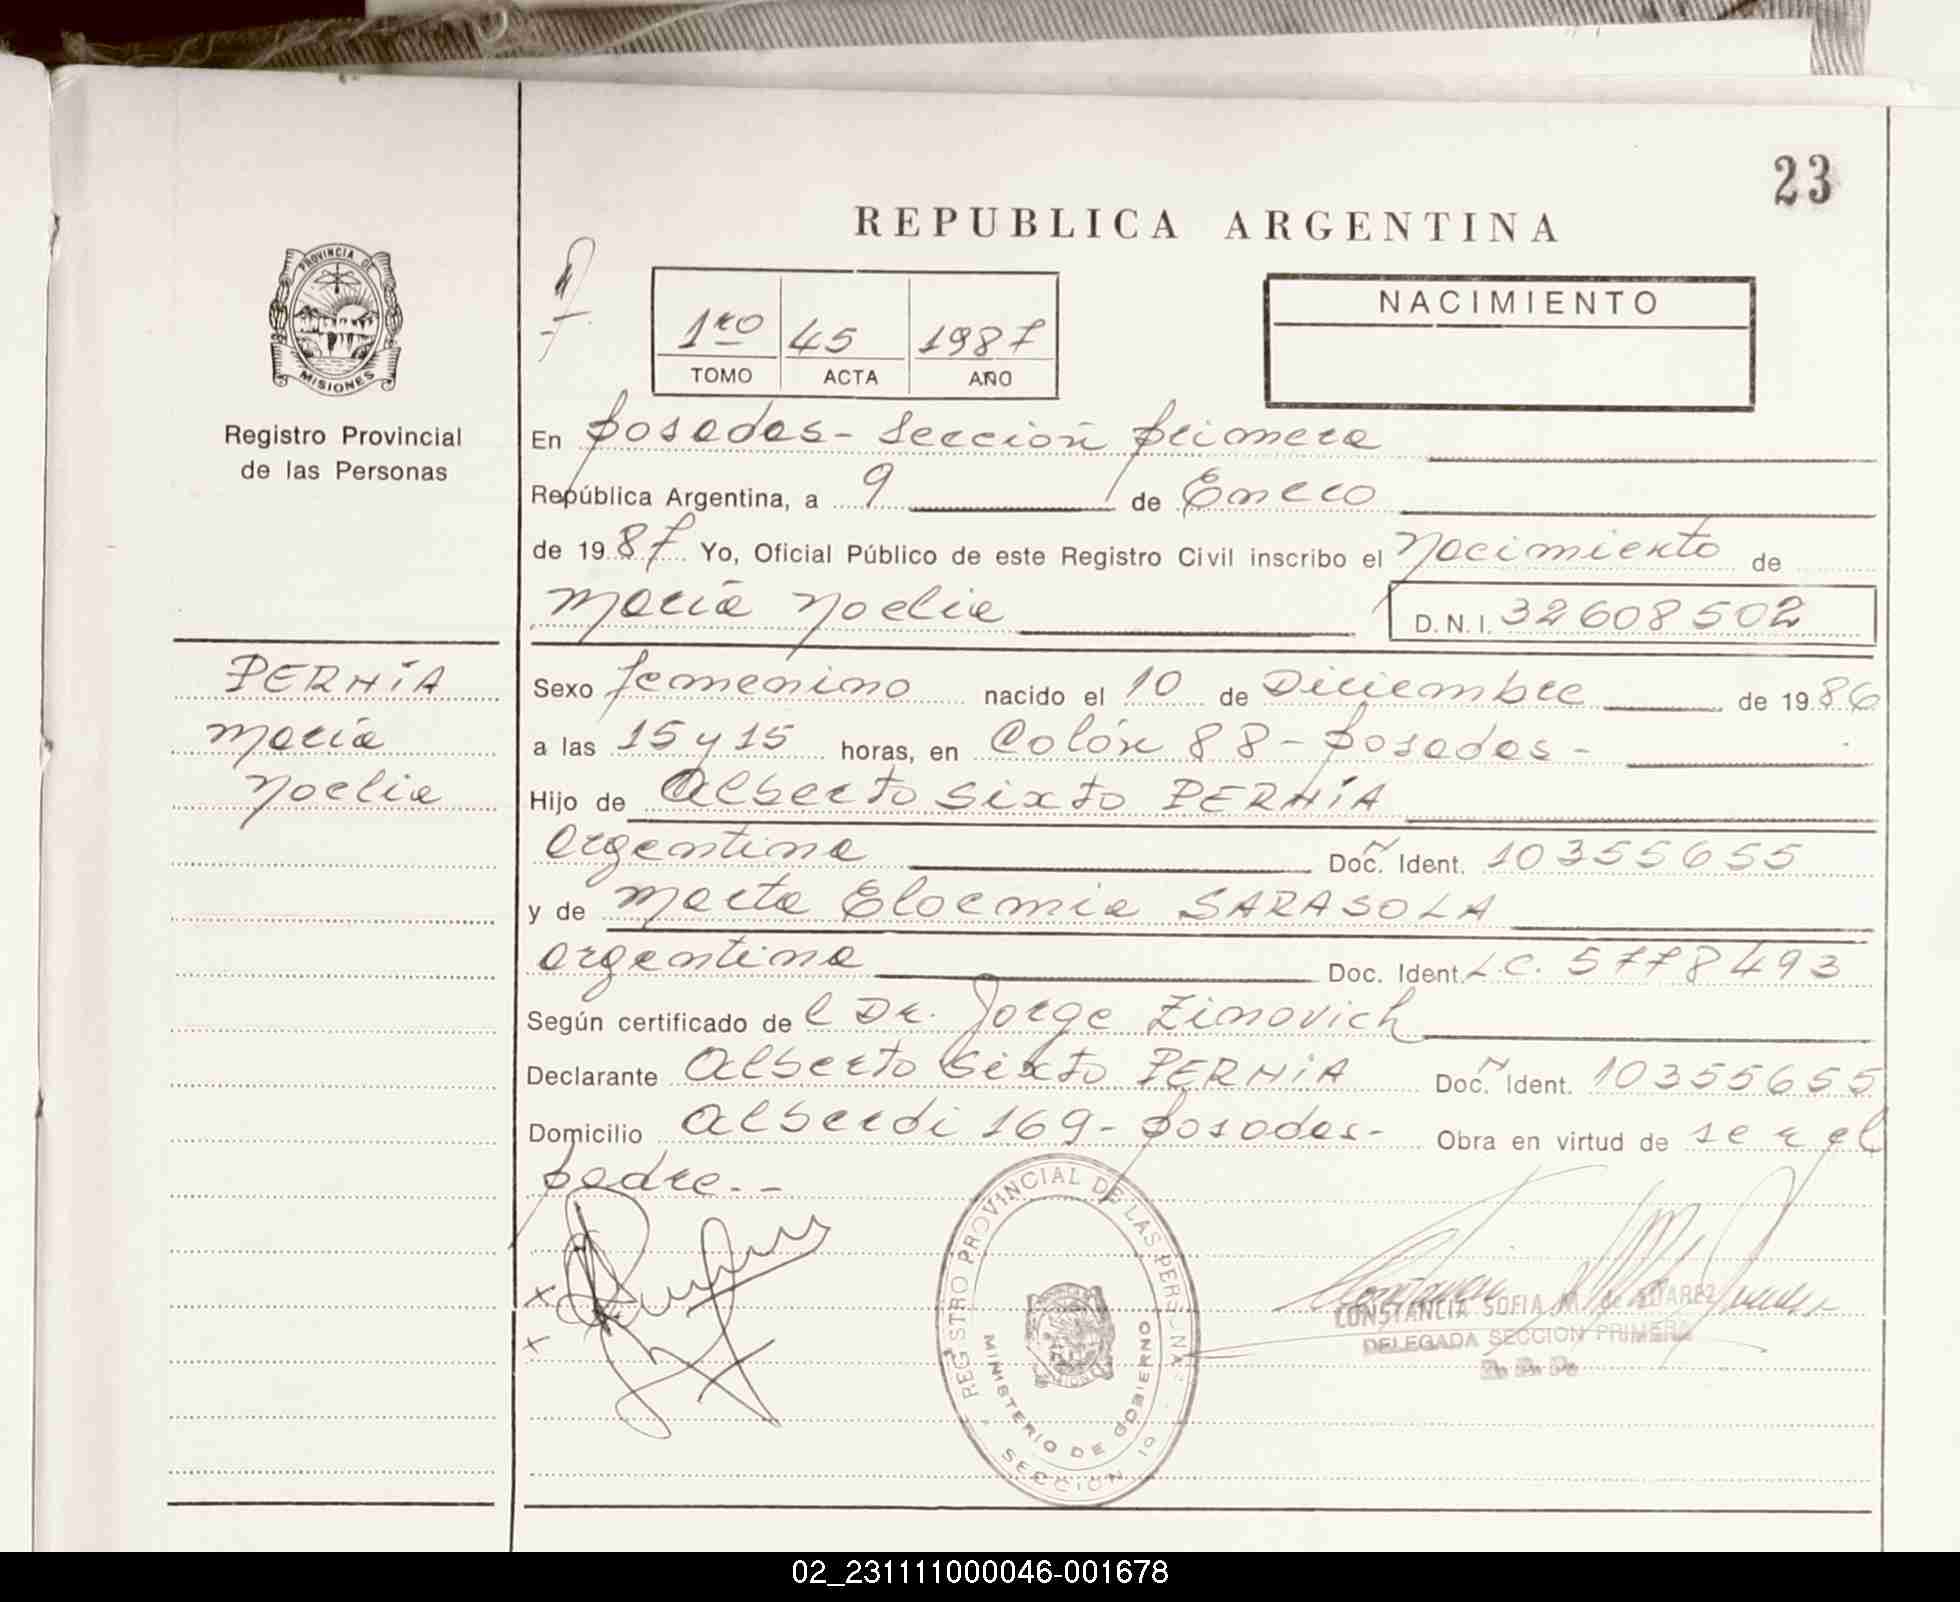 23
REPUBLICA ARGENTINA
PROVINCIA DE
MISIONES
Registro Provincial
de las Personas
1ro 45 1987
TOMO ACTA AÑO
NACIMIENTO
En Posadas - Sección Primera
República Argentina, a 9 de Enero
de 1987 Yo, Oficial Público de este Registro Civil inscribo el Nacimiento de
María Noelia D.N.I. 32608502
PERNÍA
María
Noelia
Sexo femenino nacido el 10 de Diciembre de 1986
a las 15 y 15 horas, en Colón 88 - Posadas -
Hijo de Alberto Sixto PERNÍA
argentina Doc. Ident. 10355655
y de Marta Eloemia SARASOLA
argentina Doc. Ident. L.C. 5778493
Según certificado de l Dr. Jorge Zinovich
Declarante Alberto Sixto PERNÍA Doc. Ident. 10355655
Domicilio Alberdi 169 - Posadas - Obra en virtud de ser el
padre. --
REGISTRO PROVINCIAL DE LAS PERSONAS
MINISTERIO DE GOBIERNO
SECCION 1º
CONSTANCIA SOFIA M. de SUAREZ
DELEGADA SECCION PRIMERA
02_231111000046-001678